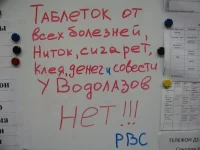 Таблеток от
всех болезней,
Ниток, сигарет,
клея, денег и совести
У Водолазов
НЕТ!!!
РВС
ТЕЛЕФОН ДЕ